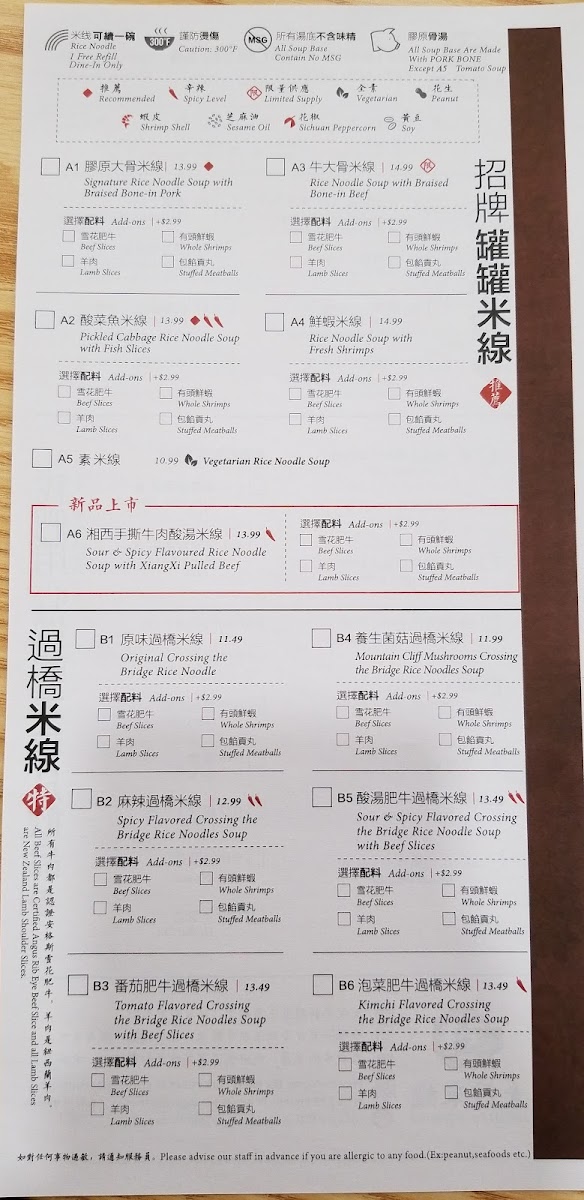 米线可續一碗
Rice Noodle
1 Free Refill
Dine-In Only
300°F
謹防燙傷
Caution: 300°F
MSG
所有湯底不含味精
All Soup Base
Contain No MSG
膠原骨湯
All Soup Base Are Made
With PORK BONE
Except A5 Tomato Soup
推薦
Recommended
辛辣
Spicy Level
限
限量供應
Limited Supply
全素
Vegetarian
花生
Peanut
蝦皮
Shrimp Shell
芝麻油
Sesame Oil
花椒
Sichuan Peppercorn
黃豆
Soy
招牌罐罐米線
推薦
A1 膠原大骨米線 | 13.99
Signature Rice Noodle Soup with
Braised Bone-in Pork
選擇配料 Add-ons | +$2.99
雪花肥牛
Beef Slices
有頭鮮蝦
Whole Shrimps
羊肉
Lamb Slices
包餡貢丸
Stuffed Meatballs
A3 牛大骨米線 | 14.99 限
Rice Noodle Soup with Braised
Bone-in Beef
選擇配料 Add-ons | +$2.99
雪花肥牛
Beef Slices
有頭鮮蝦
Whole Shrimps
羊肉
Lamb Slices
包餡貢丸
Stuffed Meatballs
A2 酸菜魚米線 | 13.99
Pickled Cabbage Rice Noodle Soup
with Fish Slices
選擇配料 Add-ons | +$2.99
雪花肥牛
Beef Slices
有頭鮮蝦
Whole Shrimps
羊肉
Lamb Slices
包餡貢丸
Stuffed Meatballs
A4 鮮蝦米線 | 14.99
Rice Noodle Soup with
Fresh Shrimps
選擇配料 Add-ons | +$2.99
雪花肥牛
Beef Slices
有頭鮮蝦
Whole Shrimps
羊肉
Lamb Slices
包餡貢丸
Stuffed Meatballs
A5 素米線 10.99 Vegetarian Rice Noodle Soup
新品上市
A6 湘西手撕牛肉酸湯米線 | 13.99
Sour & Spicy Flavoured Rice Noodle
Soup with XiangXi Pulled Beef
選擇配料 Add-ons | +$2.99
雪花肥牛
Beef Slices
有頭鮮蝦
Whole Shrimps
羊肉
Lamb Slices
包餡貢丸
Stuffed Meatballs
過橋米線
特
所有牛肉都是認證安格斯雪花肥牛，羊肉是紐西蘭羊肉。
All Beef Slices are Certified Angus Rib Eye Beef Slice and all Lamb Slices
are New Zealand Lamb Shoulder Slices.
B1 原味過橋米線 | 11.49
Original Crossing the
Bridge Rice Noodle
選擇配料 Add-ons | +$2.99
雪花肥牛
Beef Slices
有頭鮮蝦
Whole Shrimps
羊肉
Lamb Slices
包餡貢丸
Stuffed Meatballs
B4 養生菌菇過橋米線 | 11.99
Mountain Cliff Mushrooms Crossing
the Bridge Rice Noodles Soup
選擇配料 Add-ons | +$2.99
雪花肥牛
Beef Slices
有頭鮮蝦
Whole Shrimps
羊肉
Lamb Slices
包餡貢丸
Stuffed Meatballs
B2 麻辣過橋米線 | 12.99
Spicy Flavored Crossing the
Bridge Rice Noodles Soup
選擇配料 Add-ons | +$2.99
雪花肥牛
Beef Slices
有頭鮮蝦
Whole Shrimps
羊肉
Lamb Slices
包餡貢丸
Stuffed Meatballs
B5 酸湯肥牛過橋米線 | 13.49
Sour & Spicy Flavored Crossing
the Bridge Rice Noodle Soup
with Beef Slices
選擇配料 Add-ons | +$2.99
雪花肥牛
Beef Slices
有頭鮮蝦
Whole Shrimps
羊肉
Lamb Slices
包餡貢丸
Stuffed Meatballs
B3 番茄肥牛過橋米線 | 13.49
Tomato Flavored Crossing
the Bridge Rice Noodles Soup
with Beef Slices
選擇配料 Add-ons | +$2.99
雪花肥牛
Beef Slices
有頭鮮蝦
Whole Shrimps
羊肉
Lamb Slices
包餡貢丸
Stuffed Meatballs
B6 泡菜肥牛過橋米線 | 13.49
Kimchi Flavored Crossing
the Bridge Rice Noodles Soup
選擇配料 Add-ons | +$2.99
雪花肥牛
Beef Slices
有頭鮮蝦
Whole Shrimps
羊肉
Lamb Slices
包餡貢丸
Stuffed Meatballs
如對任何事物過敏，請通知服務員。Please advise our staff in advance if you are allergic to any food.(Ex:peanut,seafoods etc.)